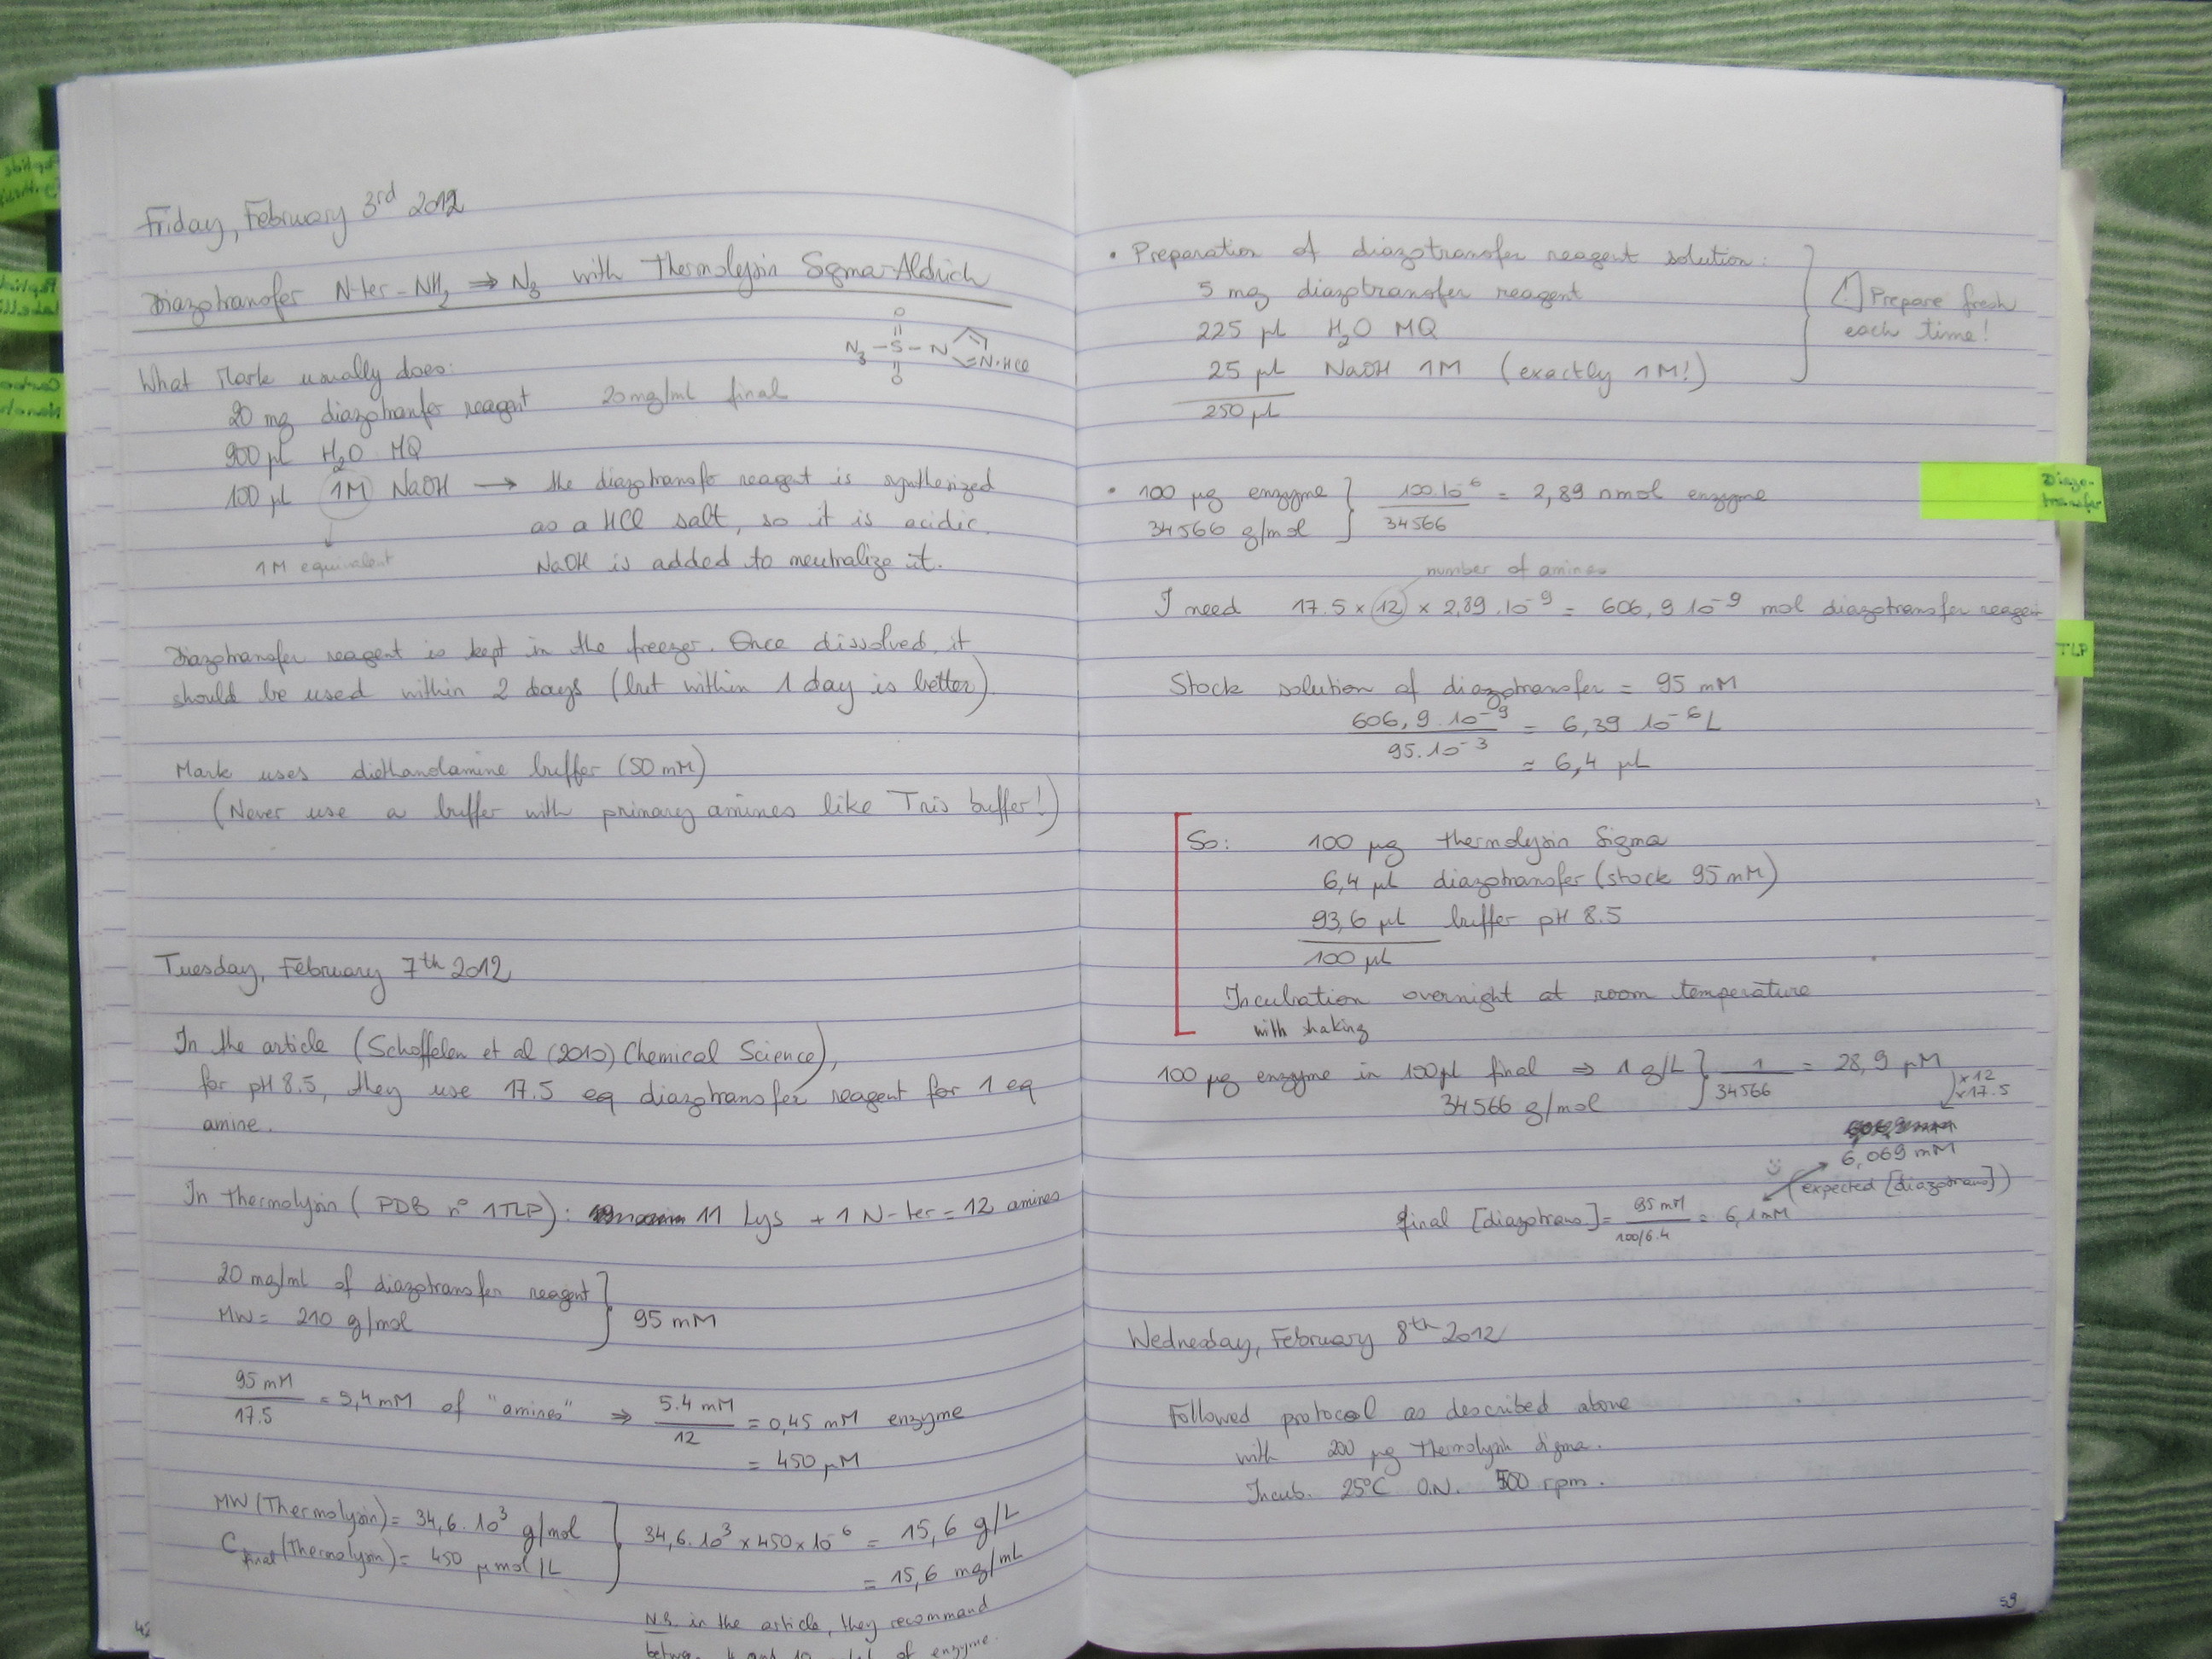 Friday, February 3rd 2012
Diazotransfer N-ter-NH2 ⇒ N3 with Thermolysin Sigma-Aldrich
O
N3 – S – N N·HCl
O
What Mark usually does:
20 mg diazotranfer reagent 20mg/ml final
900 µl H2O MQ
100 µl 1M NaOH → the diazotransfer reagent is synthesized
as a HCl salt, so it is acidic.
1M equivalent NaOH is added to neutralize it.
Diazotransfer reagent is kept in the freezer. Once dissolved, it
should be used within 2 days (but within 1 day is better).
Mark uses diethanolamine buffer (50 mM)
(Never use a buffer with primary amines like Tris buffer!)
Tuesday, February 7th 2012
In the article (Schoffelen et al (2010) Chemical Science),
for pH 8.5, they use 17.5 eq diazotransfer reagent for 1 eq
amine.
In thermolysin (PDB n° 1TLP): 11 Lys + 1 N-ter = 12 amines
20 mg/ml of diazotransfer reagent
MW = 210 g/mol } 95 mM
95 mM / 17.5 = 5,4 mM of "amines" ⇒ 5.4 mM / 12 = 0,45 mM enzyme
= 450 µM
MW (Thermolysin) = 34,6.10³ g/mol
C final (Thermolysin) = 450 µmol/L } 34,6.10³ × 450 × 10⁻⁶ = 15,6 g/L
= 15,6 mg/mL
NB. in the article, they recommand
4 and 10 of enzyme.
42
• Preparation of diazotransfer reagent solution:
5 mg diazotransfer reagent
225 µl H2O MQ
25 µl NaOH 1M (exactly 1M!)
250 µL
⚠ Prepare fresh
each time!
Diazo-
transfer
• 100 µg enzyme
34566 g/mol } 100.10⁻⁶ / 34566 = 2,89 nmol enzyme
number of amines
I need 17.5 × 12 × 2,89.10⁻⁹ = 606,9 10⁻⁹ mol diazotransfer reagent
TLP
Stock solution of diazotransfer = 95 mM
606,9.10⁻⁹ / 95.10⁻³ = 6,39 10⁻⁶ L
≈ 6,4 µL
So: 100 µg thermolysin Sigma
6,4 µl diazotransfer (stock 95 mM)
93,6 µl buffer pH 8.5
100 µL
Incubation overnight at room temperature
with shaking
100 µg enzyme in 100µl final ⇒ 1 g/L
34566 g/mol } 1 / 34566 = 28,9 µM
×12
×17.5
6,069 mM
(expected [diazotrans])
final [diazotrans] = 95 mM / 100/6.4 = 6,1 mM
Wednesday, February 8th 2012
Followed protocol as described above
with 200 µg thermolysin sigma.
Incub. 25°C O.N. 500 rpm.
59